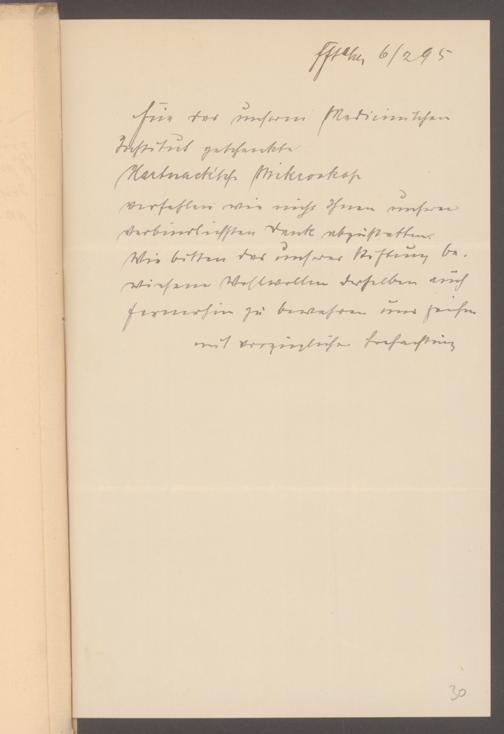 6/2 95
Für das unserm Medicinischen
Institut geschenkte
Hartnack'sche Mikroskop
verfehlen wir nicht Ihnen unseren
verbindlichsten Dank abzustatten.
Wir bitten das unserer Stiftung be-
wiesene Wohlwollen derselben auch
fernerhin zu bewahren und zeichnen
mit vorzüglicher Hochachtung
30